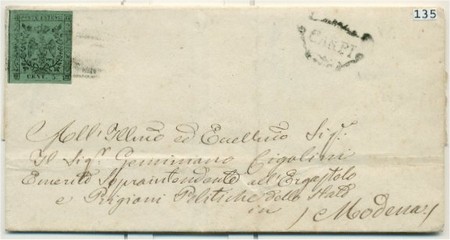 135
CENT.
CARPI
All'Illmo ed Eccellmo Sigr:
Il Sigr Geminiano Cigolini
Emerito Sopraintendente all'Ergastolo
e Prigioni Politiche dello Stato
in Modena